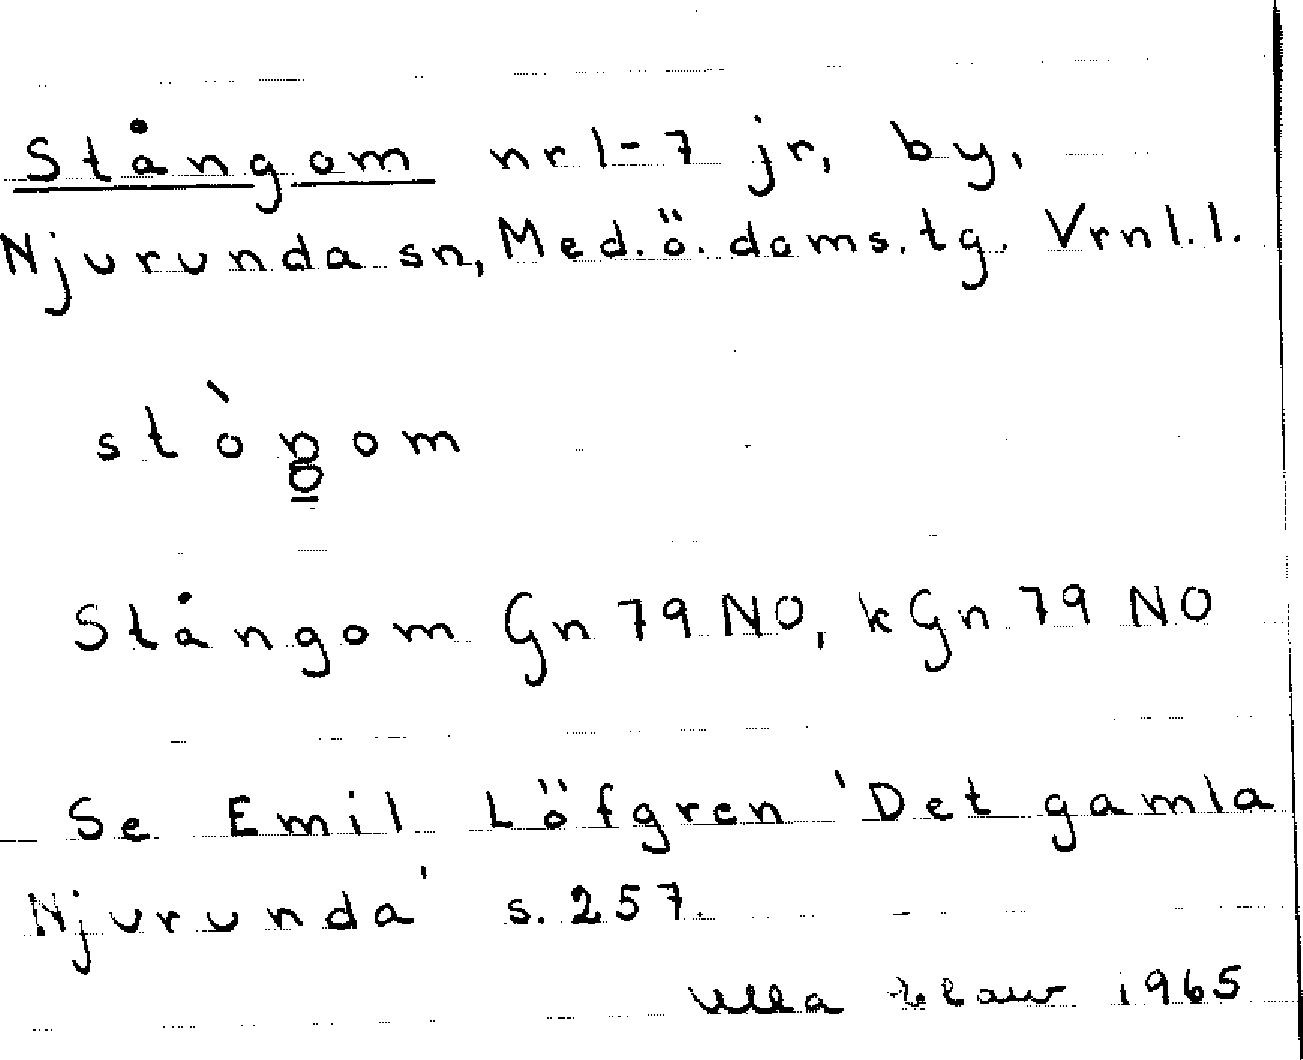 Stångom nr 1-7 jr, by,
Njurunda sn, Med.ö. doms. tg. Vrnl. l.
Stångom Gn 79 NO, kGn 79 NO
Se Emil Löfgren 'Det gamla
Njurunda' s. 257.
Ulla 1965